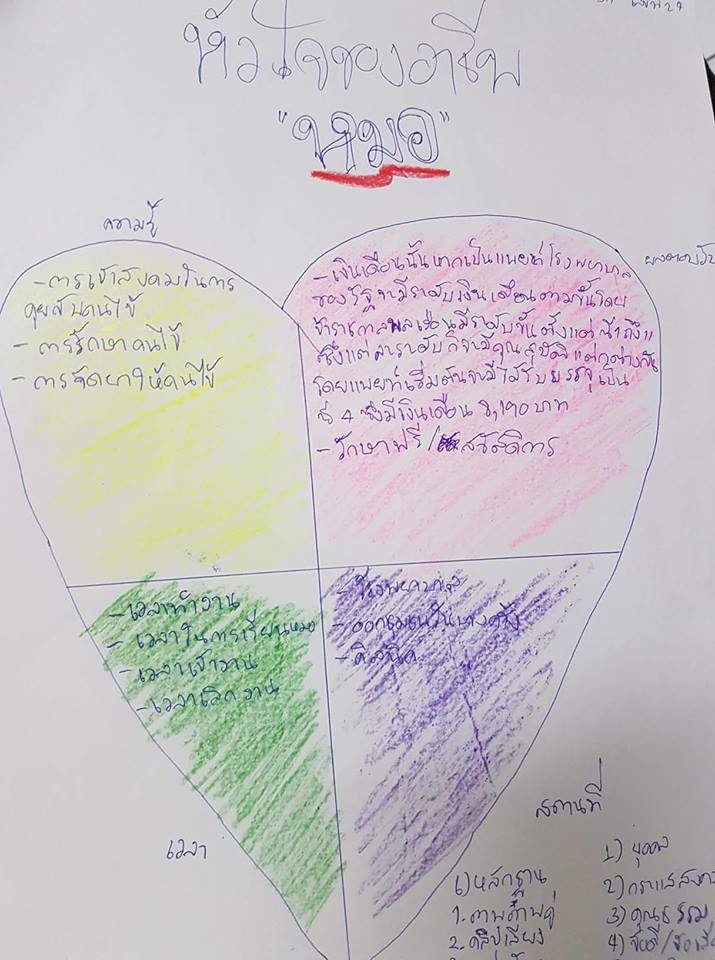 หัวใจของอาชีพ
"หมอ"
ความรู้
- การเข้าสังคมในการ
คุยกับคนไข้
- การรักษาคนไข้
- การจัดยาให้คนไข้
ผลตอบ
- เงินเดือนนั้นหากเป็นแพทย์โรงพยาบาล
ของรัฐจะมีระดับเงินเดือนตามขั้นโดย
ข้าราชการพลเรือนมีระดับขั้นตั้งแต่
ซึ่งแต่ละระดับก็จะมีคุณวุฒิที่แตกต่างกัน
โดยแพทย์เริ่มต้นจะมีได้รับบรรจุเป็น
ซี 4 ซึ่งมีเงินเดือน 8,190 บาท
- รักษาฟรี/สวัสดิการ
- เวลาทำงาน
- เวลาในการเรียนหมอ
- เวลาเข้างาน
- เวลาเลิกงาน
เวลา
- โรงพยาบาล
- ออกชุมชนในบางครั้ง
- คลินิค
สถานที่
หลักฐาน
1.
2. คลิปเสียง
1) บุคคล
2) กระแสสังคม
3) คุณธรรม
4)